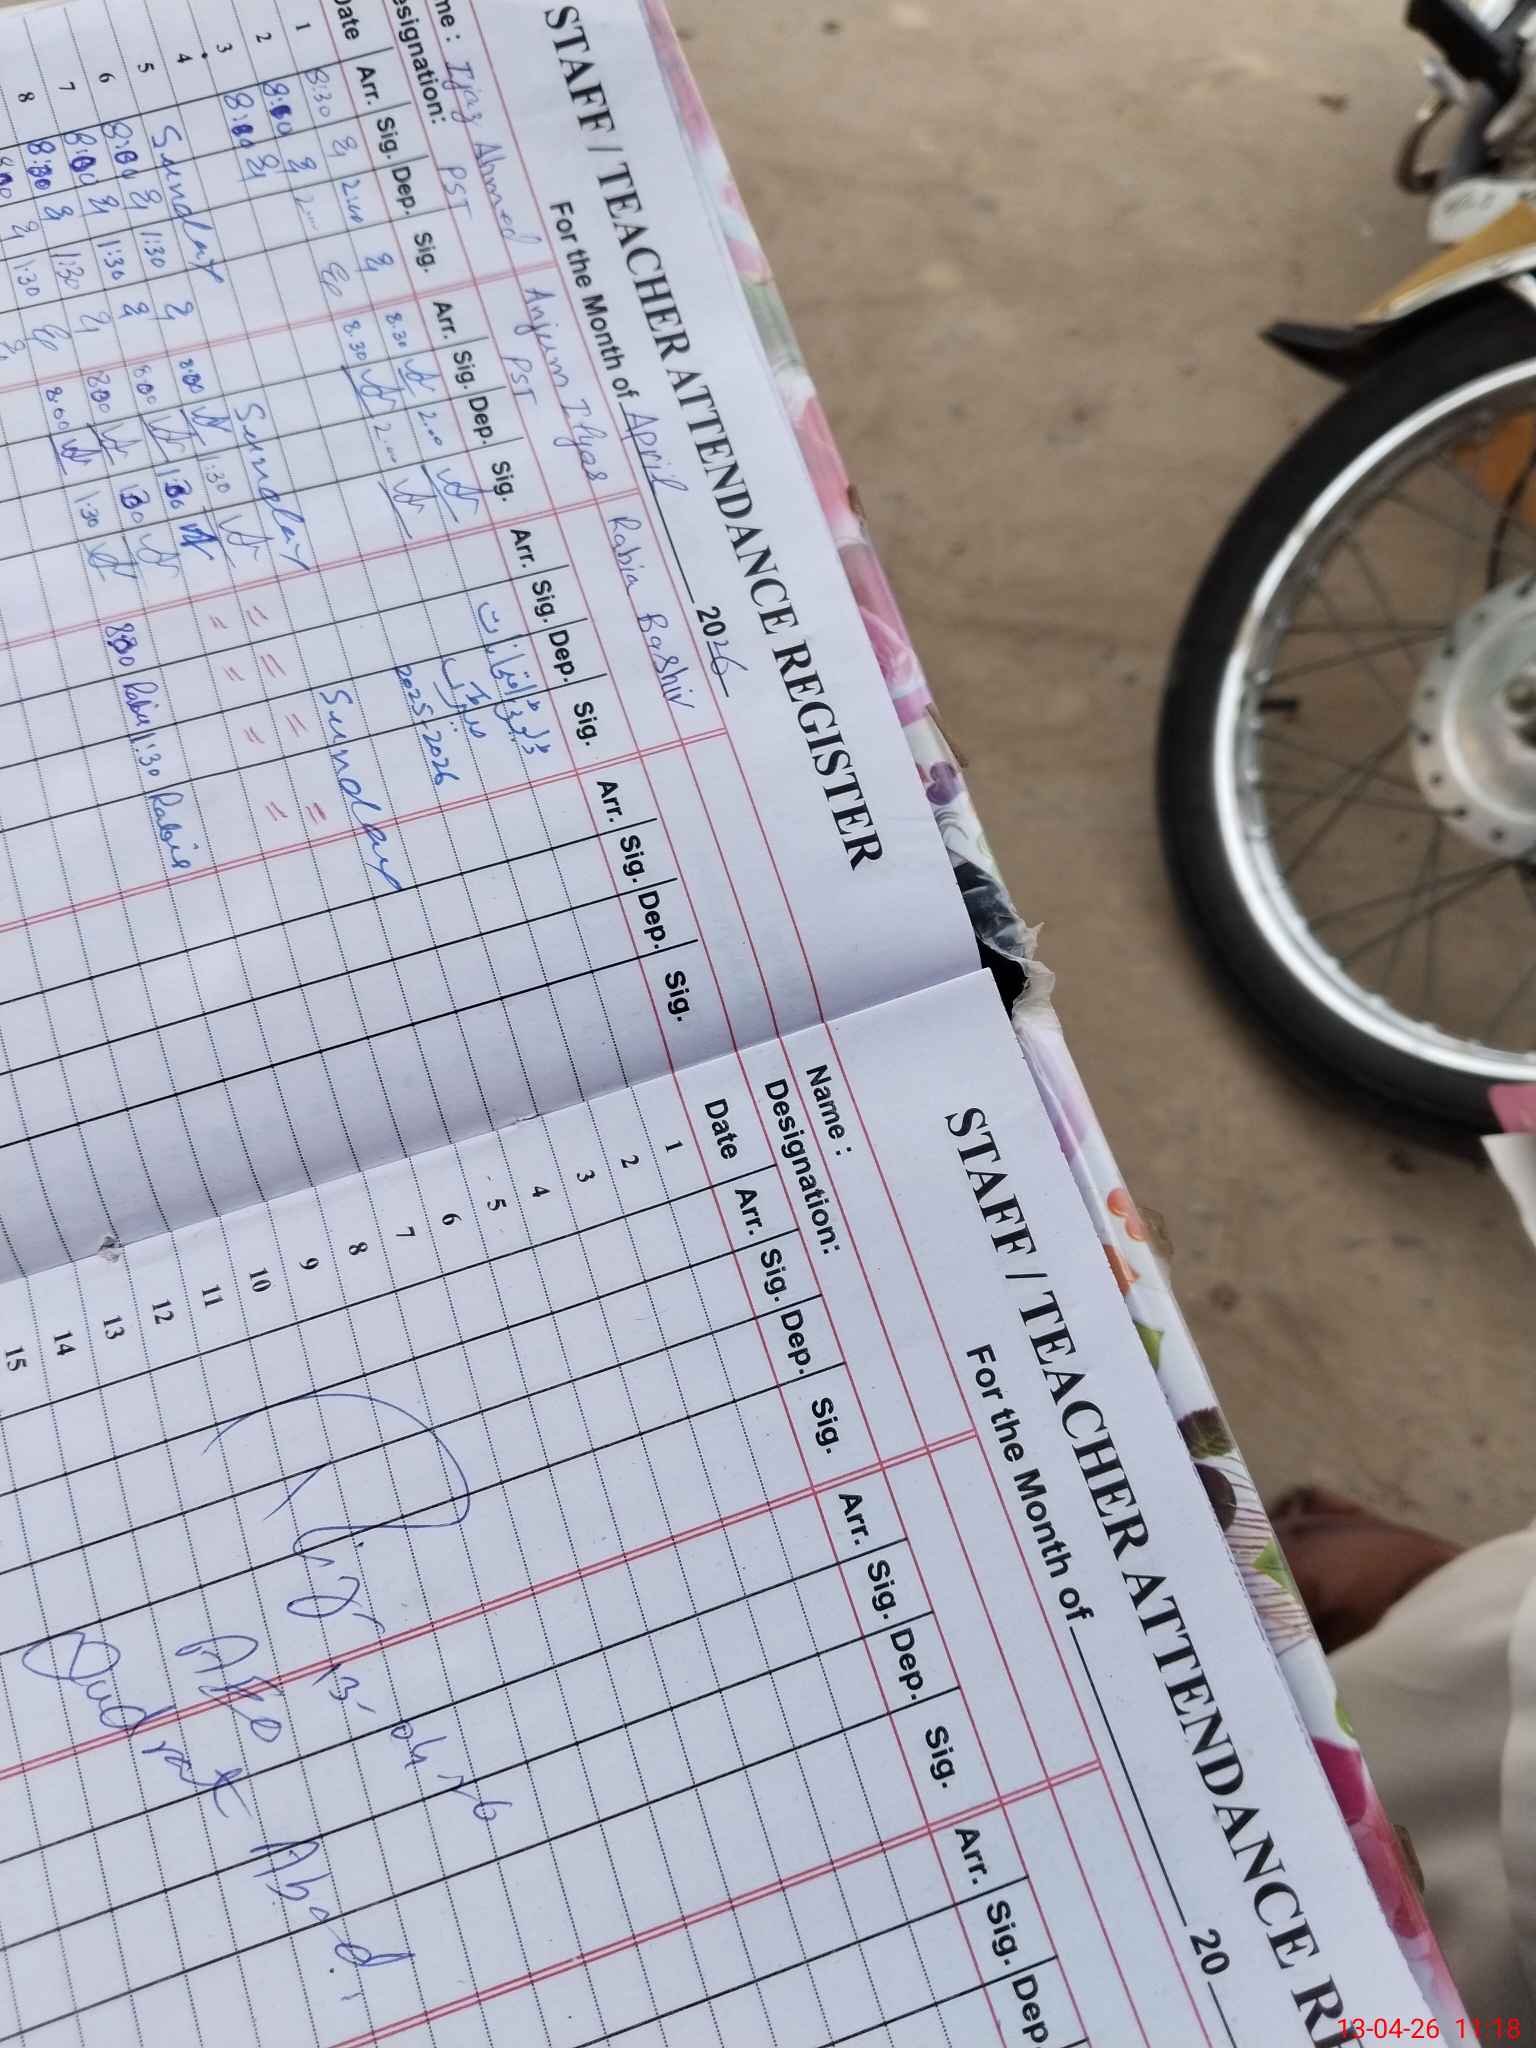 STAFF / TEACHER ATTENDANCE REGISTER
For the Month of April 2026
me : Ijaz Ahmed Anjum Ilyas Rabia Bashir
esignation: PST PST
Date Arr. Sig. Dep. Sig. Arr. Sig. Dep. Sig. Arr. Sig. Dep. Sig. Arr. Sig. Dep. Sig.
1 8:30 2:00 8.30 2.00
2 8:00 8.30 2:00
3 8:00
2025-2026
4
5 Sunday Sunday Sunday
6 8:00 1:30 8:00 1:30 = = = =
7 8:00 1:30 8:00 1:30 = = = =
8 8:00 1:30 8:00 1:30 8:00 Rabia 1:30 Rabia
1:30 8:00 1:30
STAFF / TEACHER ATTENDANCE RE
For the Month of 20
Name :
Designation:
Date Arr. Sig. Dep. Sig. Arr. Sig. Dep. Sig. Arr. Sig. Dep.
1
2
3
4
5
6
7
8
9
10
11
12
13
14
15
13-04-26
AEO
Qudrat Abad
13-04-26 11:18